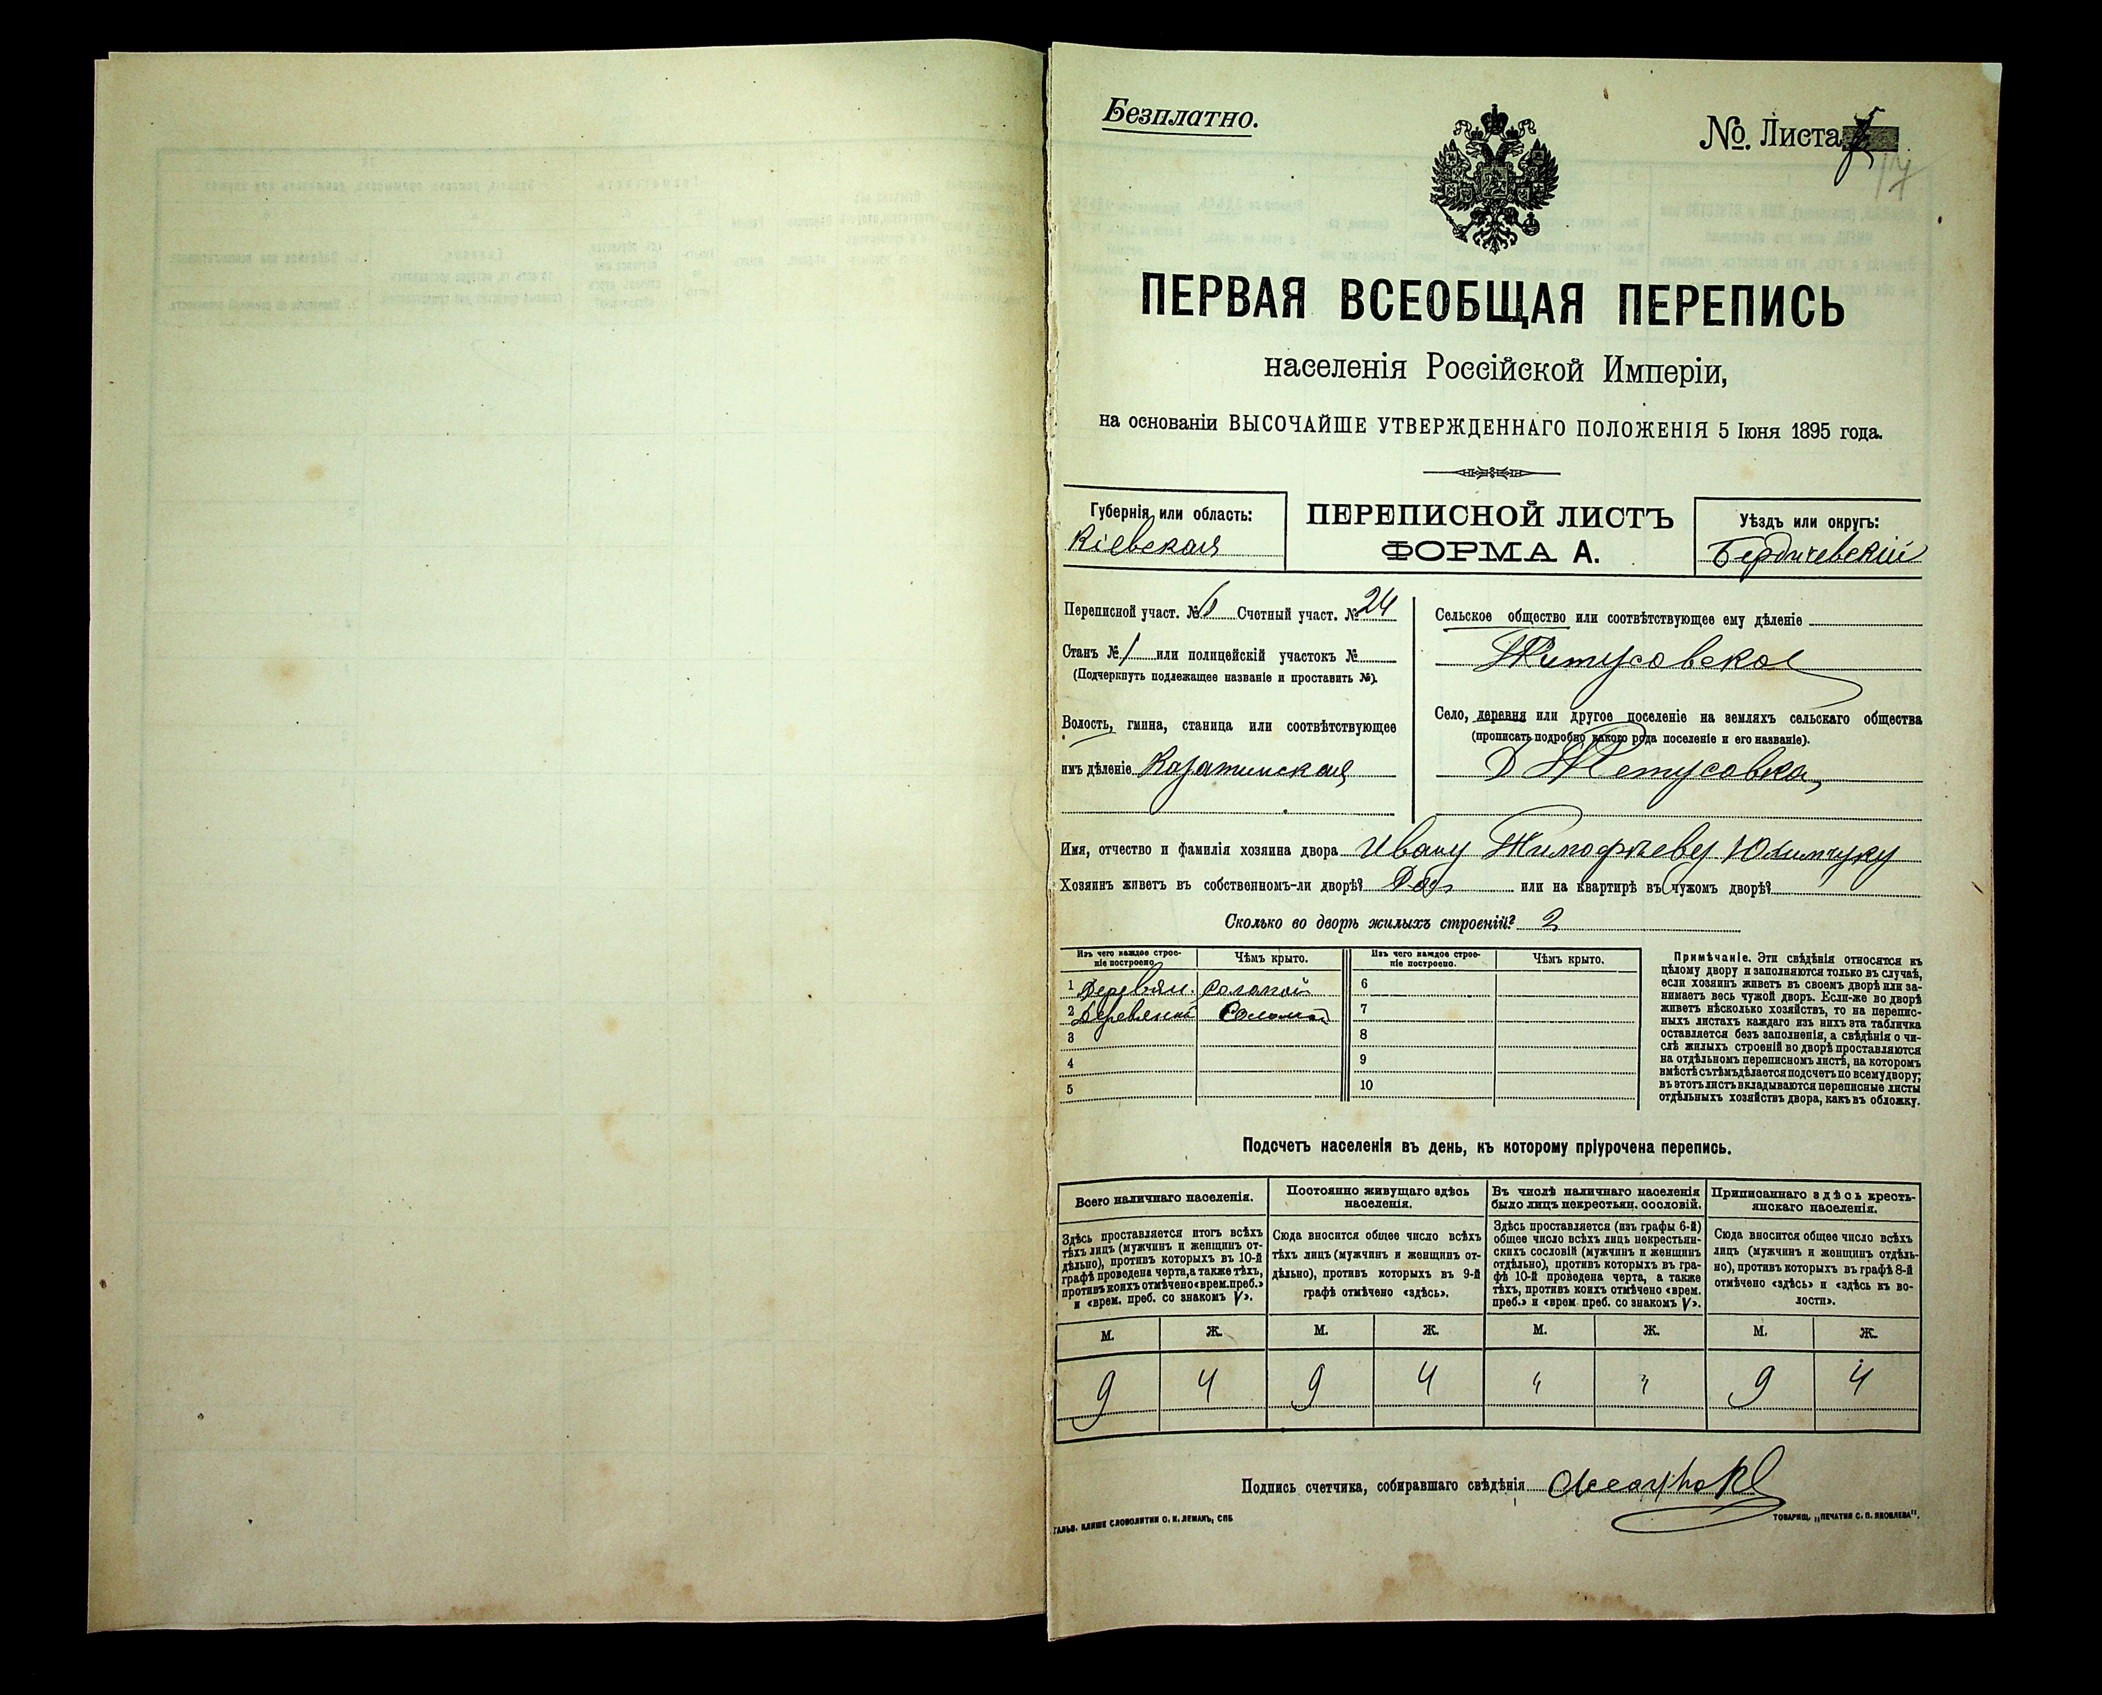 Безплатно.
№. Листа
17
ПЕРВАЯ ВСЕОБЩАЯ ПЕРЕПИСЬ
населенія Россійской Имперіи,
на основаніи ВЫСОЧАЙШЕ УТВЕРЖДЕННАГО ПОЛОЖЕНІЯ 5 Іюня 1895 года.
Губернія или область:
Кіевская
ПЕРЕПИСНОЙ ЛИСТЪ
ФОРМА А.
Уѣздъ или округъ:
Бердичевскій
Переписной участ. № 6 Счетный участ. № 24
Станъ № 1 или полицейскій участокъ №
(Подчеркнуть подлежащее названіе и проставить №).
Волость, гмина, станица или соотвѣтствующее
имъ дѣленіе Казатинская
Сельское общество или соотвѣтствующее ему дѣленіе
Село, деревня или другое поселеніе на земляхъ сельскаго общества
(прописать подробно какого рода поселеніе и его названіе).
Имя, отчество и фамилія хозяина двора Ивану Тимофѣеву Юхимчуку
Хозяинъ живетъ въ собственномъ-ли дворѣ? Да или на квартирѣ въ чужомъ дворѣ?
Сколько во дворѣ жилыхъ строеній? 2
Изъ чего каждое строе-
ніе построено. Чѣмъ крыто. Изъ чего каждое строе-
ніе построено. Чѣмъ крыто.
1 Деревян. Соломой 6
2 Деревяный Соломой 7
3 8
4 9
5 10
Примѣчаніе. Эти свѣдѣнія относятся къ
цѣлому двору и заполняются только въ случаѣ,
если хозяинъ живетъ въ своемъ дворѣ или за-
нимаетъ весь чужой дворъ. Если-же во дворѣ
живетъ нѣсколько хозяйствъ, то на перепис-
ныхъ листахъ каждаго изъ нихъ эта табличка
оставляется безъ заполненія, а свѣдѣнія о чи-
слѣ жилыхъ строеній во дворѣ проставляются
на отдѣльномъ переписномъ листѣ, на которомъ
вмѣстѣ съ тѣмъ дѣлается подсчетъ по всему двору;
въ этотъ листъ вкладываются переписные листы
отдѣльныхъ хозяйствъ двора, какъ въ обложку.
Подсчетъ населенія въ день, къ которому пріурочена перепись.
Всего наличнаго населенія.
Здѣсь проставляется итогъ всѣхъ
тѣхъ лицъ (мужчинъ и женщинъ от-
дѣльно), противъ которыхъ въ 10-й
графѣ проведена черта, а также тѣхъ,
противъ коихъ отмѣчено «врем. преб.»
и «врем. преб. со знакомъ V».
Постоянно живущаго здѣсь
населенія.
Сюда вносится общее число всѣхъ
тѣхъ лицъ (мужчинъ и женщинъ от-
дѣльно), противъ которыхъ въ 9-й
графѣ отмѣчено «здѣсь».
Въ числѣ наличнаго населенія
было лицъ некрестьян. сословій.
Здѣсь проставляется (изъ графы 6-й)
общее число всѣхъ лицъ некрестьян-
скихъ сословій (мужчинъ и женщинъ
отдѣльно), противъ которыхъ въ гра-
фѣ 10-й проведена черта, а также
тѣхъ, противъ коихъ отмѣчено «врем.
преб.» и «врем преб. со знакомъ V».
Приписаннаго здѣсь кресть-
янскаго населенія.
Сюда вносится общее число всѣхъ
лицъ (мужчинъ и женщинъ отдѣль-
но), противъ которыхъ въ графѣ 8-й
отмѣчено «здѣсь» и «здѣсь въ во-
лости».
М. Ж. М. Ж. М. Ж. М. Ж.
9 4 9 4 " " 9 4
Подпись счетчика, собиравшаго свѣдѣнія
ГАЛЬВ. КЛИШЕ СЛОВОЛИТНИ О. И. ЛЕМАНЪ, СПБ
ТОВАРИЩ. „ПЕЧАТНЯ С. П. ЯКОВЛЕВА".